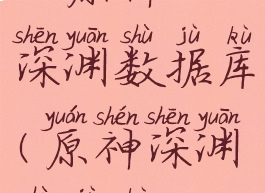 shēn yuān shù jù kù
深渊数据库
yuán shén shēn yuān
(原神深渊